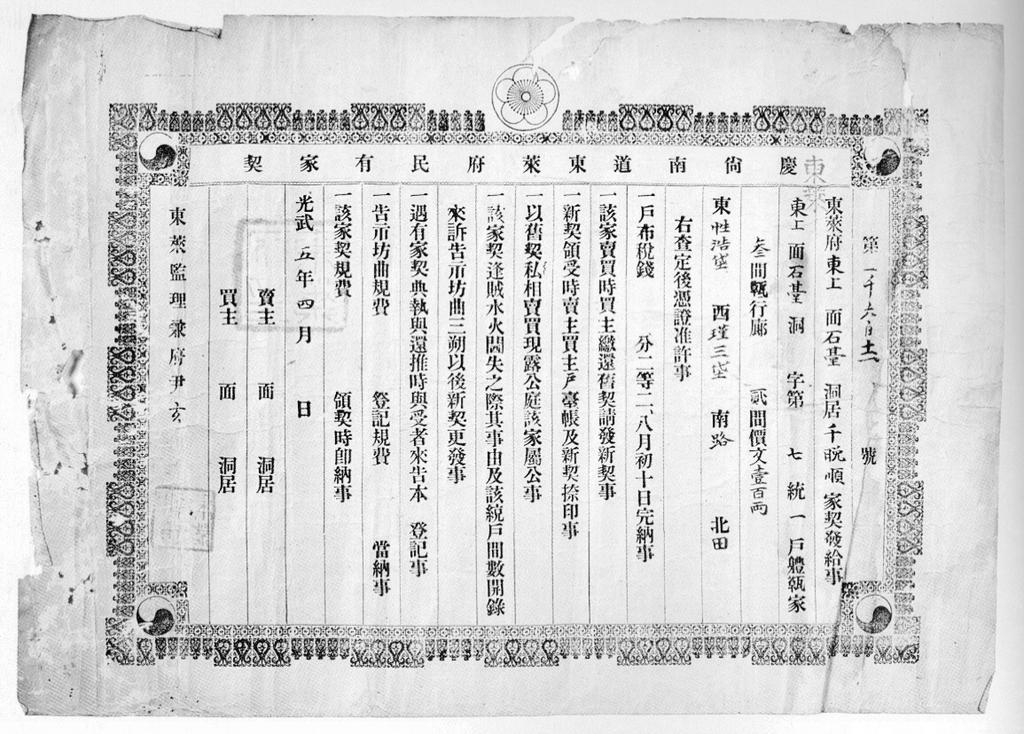 慶尙南道東萊府民有家契
東萊
第一千六百十二號
東萊府東上面石臺洞居千晩順家契發給事
東上面石臺洞 字第 七統一戶體瓴家
叄間瓴行廊 貳間價文壹百兩
東性浩垈 西瑾三垈 南路 北田
右查定後憑證准許事
一戶布稅錢 分二等二、八月初十日完納事
一該家賣買時買主繳還舊契請發新契事
一新契領受時賣主買主戶臺帳及新契捺印事
一以舊契私相賣買現露公庭該家屬公事
一該家契逢賊水火閪失之際其事由及該統戶間數開錄
來訴告示坊曲三朔以後新契更發事
一遇有家契典執與還推時與受者來告本 登記事
一告示坊曲規費 登記規費 當納事
一該家契規費 領契時卽納事
光武五年四月 日
賣主 面 洞居
買主 面 洞居
東萊監理兼府尹玄